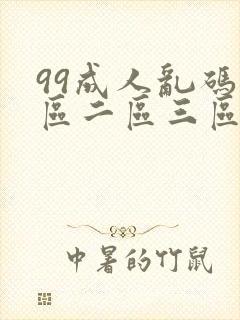 99成人亂碼
區二區三區
中暑的竹鼠